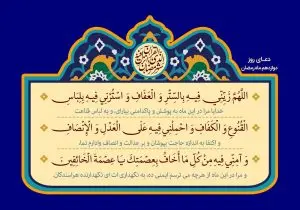 دعای روز
دوازدهم ماه رمضان
اللَّهُمَّ زَیِّنِّی فِیهِ بِالسِّتْرِ وَ الْعَفَافِ وَ اسْتُرْنِی فِیهِ بِلِبَاسِ
خدایا مرا در این ماه به پوشش و پاکدامنی بیارای، و به لباس قناعت
الْقُنُوعِ وَ الْکَفَافِ وَ احْمِلْنِی فِیهِ عَلَی الْعَدْلِ وَ الْإِنْصَافِ
و اکتفا به اندازه حاجت بپوشان و بر عدالت و انصاف وادارم نما،
وَ آمِنِّی فِیهِ مِنْ کُلِّ مَا أَخَافُ بِعِصْمَتِکَ یَا عِصْمَةَ الْخَائِفِینَ
و مرا در این ماه از هرچه می ترسم ایمنی ده، به نگهداری ات ای نگهدارنده هراسندگان